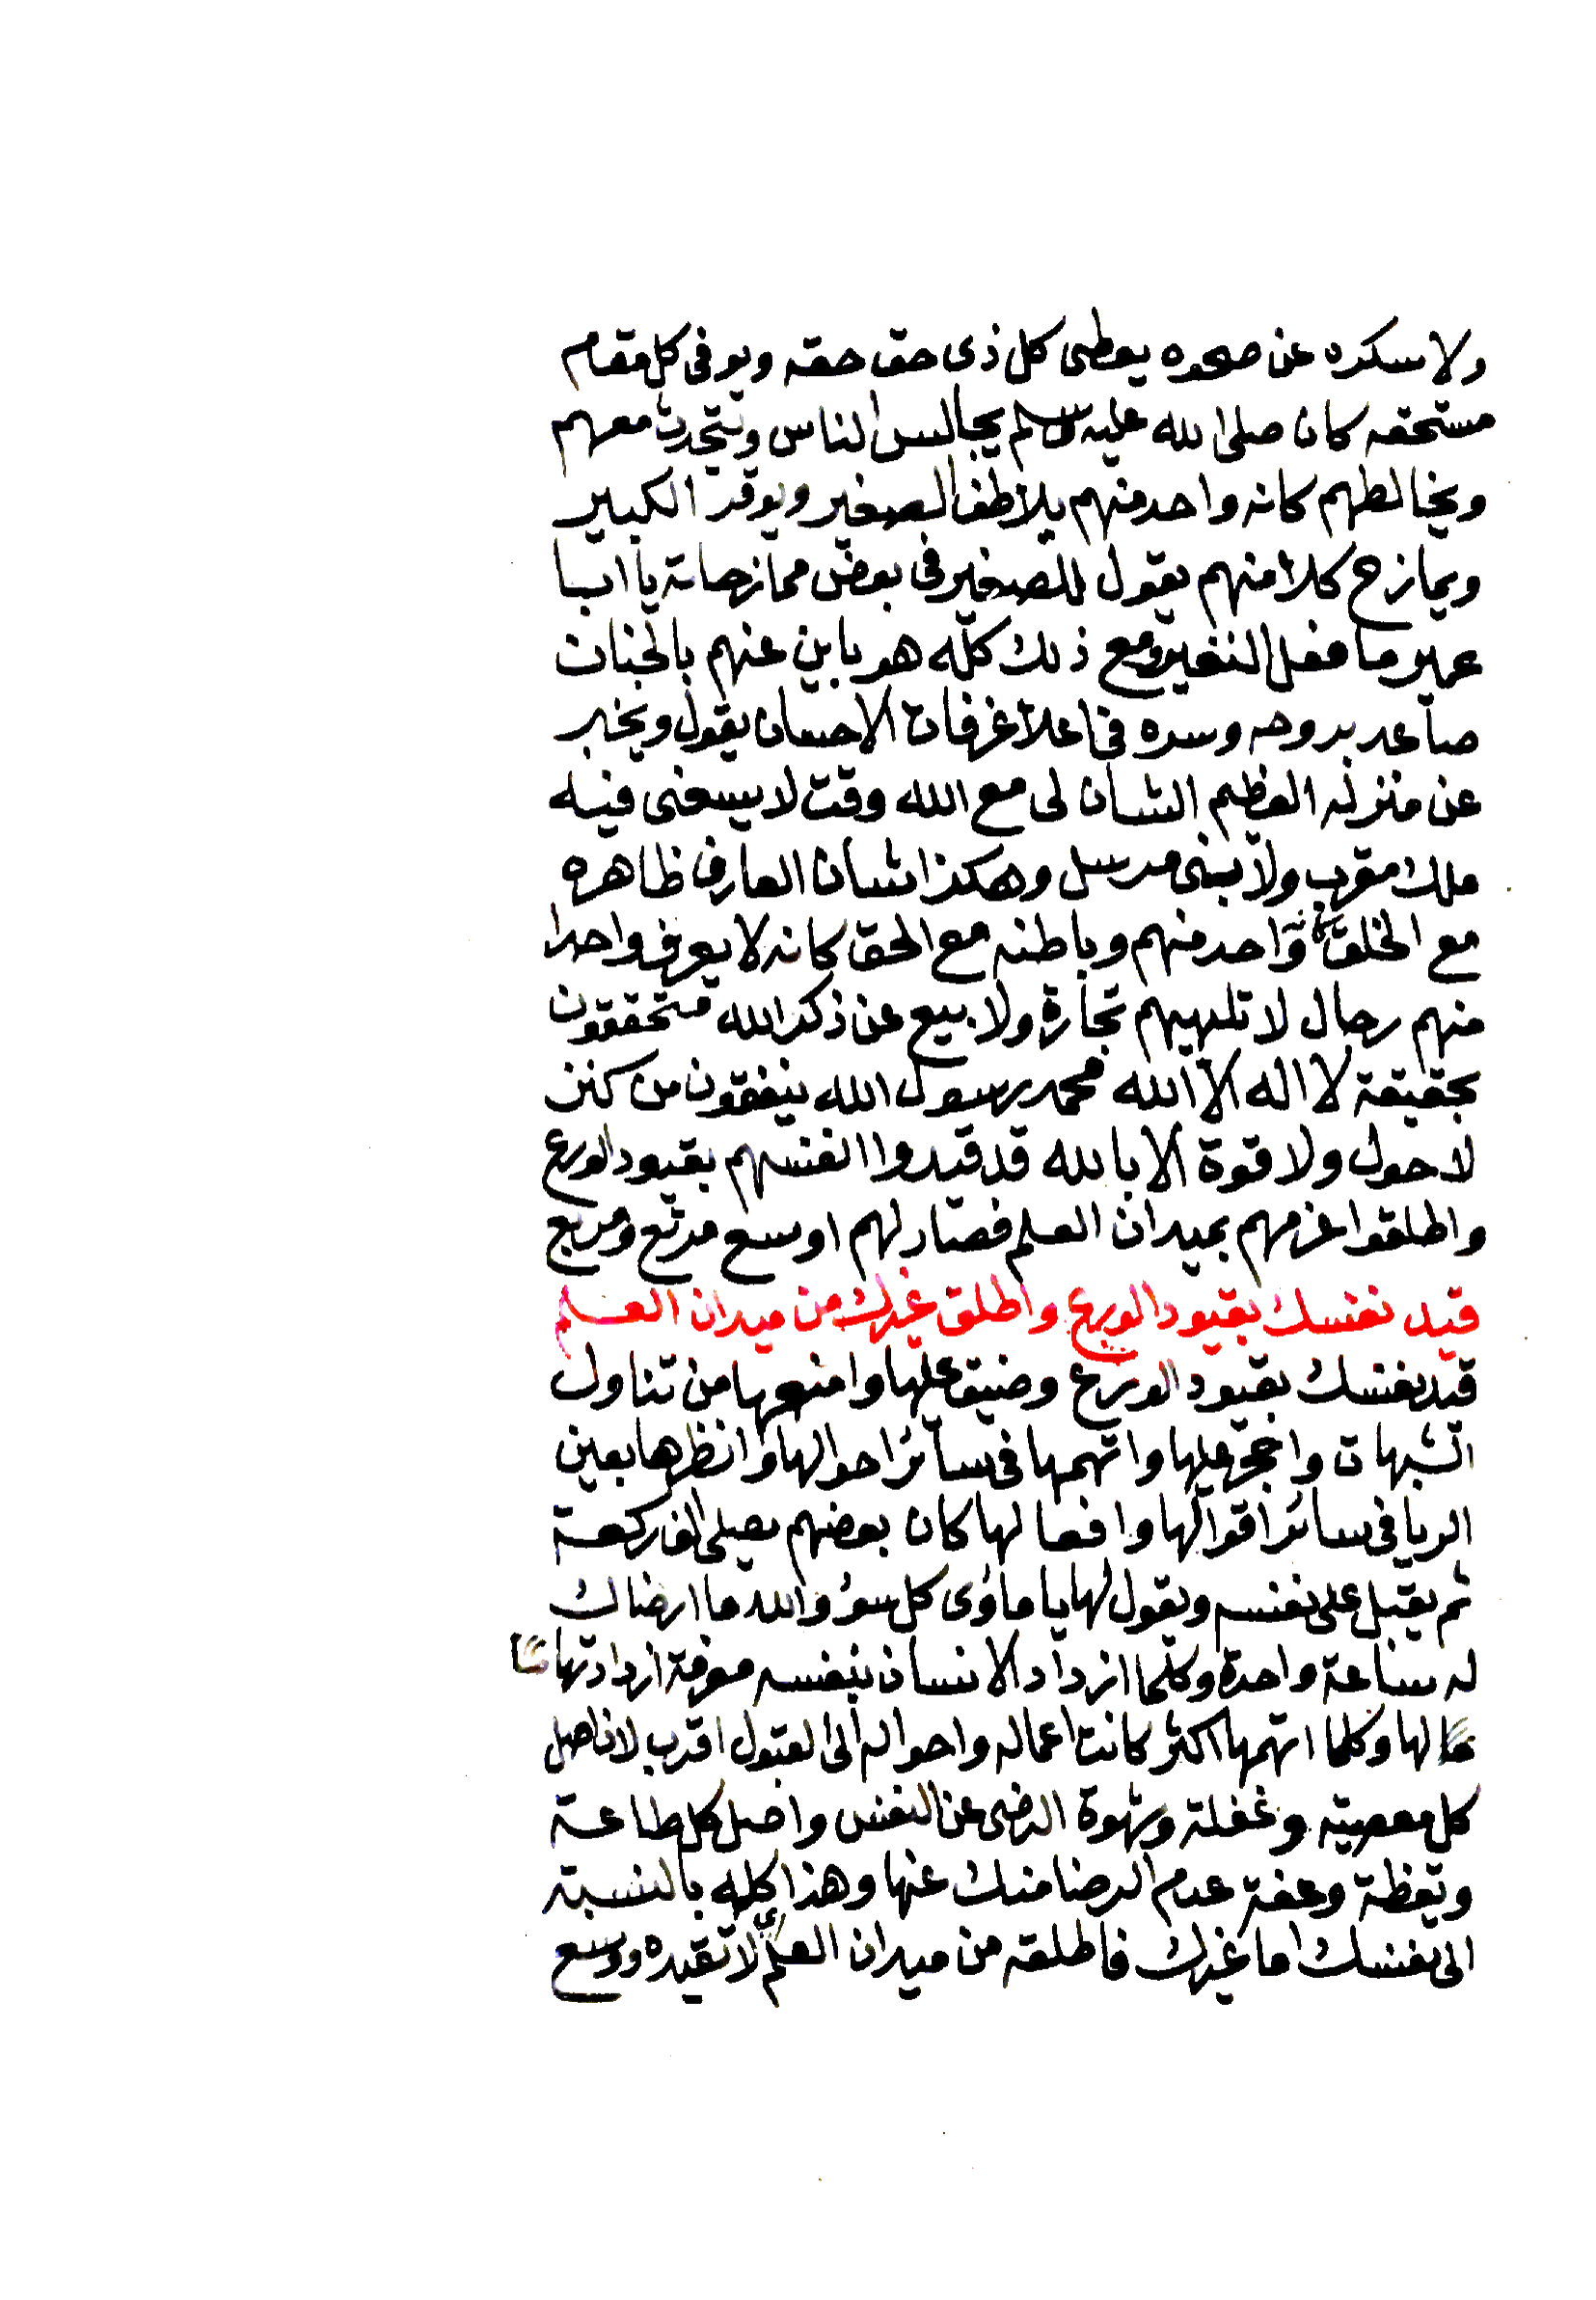 ولا سكره عن صحوه يعطى كل ذى حق حقه ويوفى كل مقام
مستحقه كان صلى الله عليه وسلم يجالس الناس ويتحدث معهم
ويخالطهم كانه واحد منهم يلاطف الصغير ويوقر الكبير
ويمازح كلا منهم يقول للصغير فى بعض ممازحاته يا ابا
عمير ما فعل النغير ومع ذلك كلّه هو باين عنهم بالجنان
صاعد بروحه وسره فى اعلا غرفات الاحسان يقول ويخبر
عن منزله العظيم الشان لى مع الله وقت لا يسعنى فيه
ملك مقرب ولا بنى مرسل وهكذا شان العارف ظاهره
مع الخلق كانه واحد منهم وباطنه مع الحق كانه لا يعرف واحدا
منهم رجال لا تلهيهم تجارة ولا بيع عن ذكر الله متحققون
بحقيقة لا اله الا الله محمد رسول الله ينفقون من كنز
لا حول ولا قوة الا بالله قد قيدوا انفسهم بقيود الورع
واطلقوا غيرهم بميدان العلم فصار لهم اوسع مرتع ومربع
قيد نفسك بقيود الورع واطلق غيرك من ميدان العلم
قيد نفسك بقيود الورع وضيق علها وامنعها من تناول
الشبهات واحجر عليها واتهمها فى سائر احوالها وانظرها بعين
الريا فى سائر اقوالها وافعالها كان بعضهم يصلى الف ركعة
ثم يقبل على نفسه ويقول لها يا مأوى كل سوء والله ما ارضاك
له ساعة واحدة وكلما ازداد الانسان بنفسه معرفة ازداد تهما
لها وكلما اتهمها اكثر كانت اعماله واحواله الى القبول اقرب لان اصل
كل معصية وغفلة وشهوة الرضى عن النفس واصل كل طاعة
ويقظة وعفة عدم الرضا منك عنها وهذا كله بالنسبة
الى نفسك اما غيرك فاطلقه من ميدان العلم اى لا تقيده ووسع